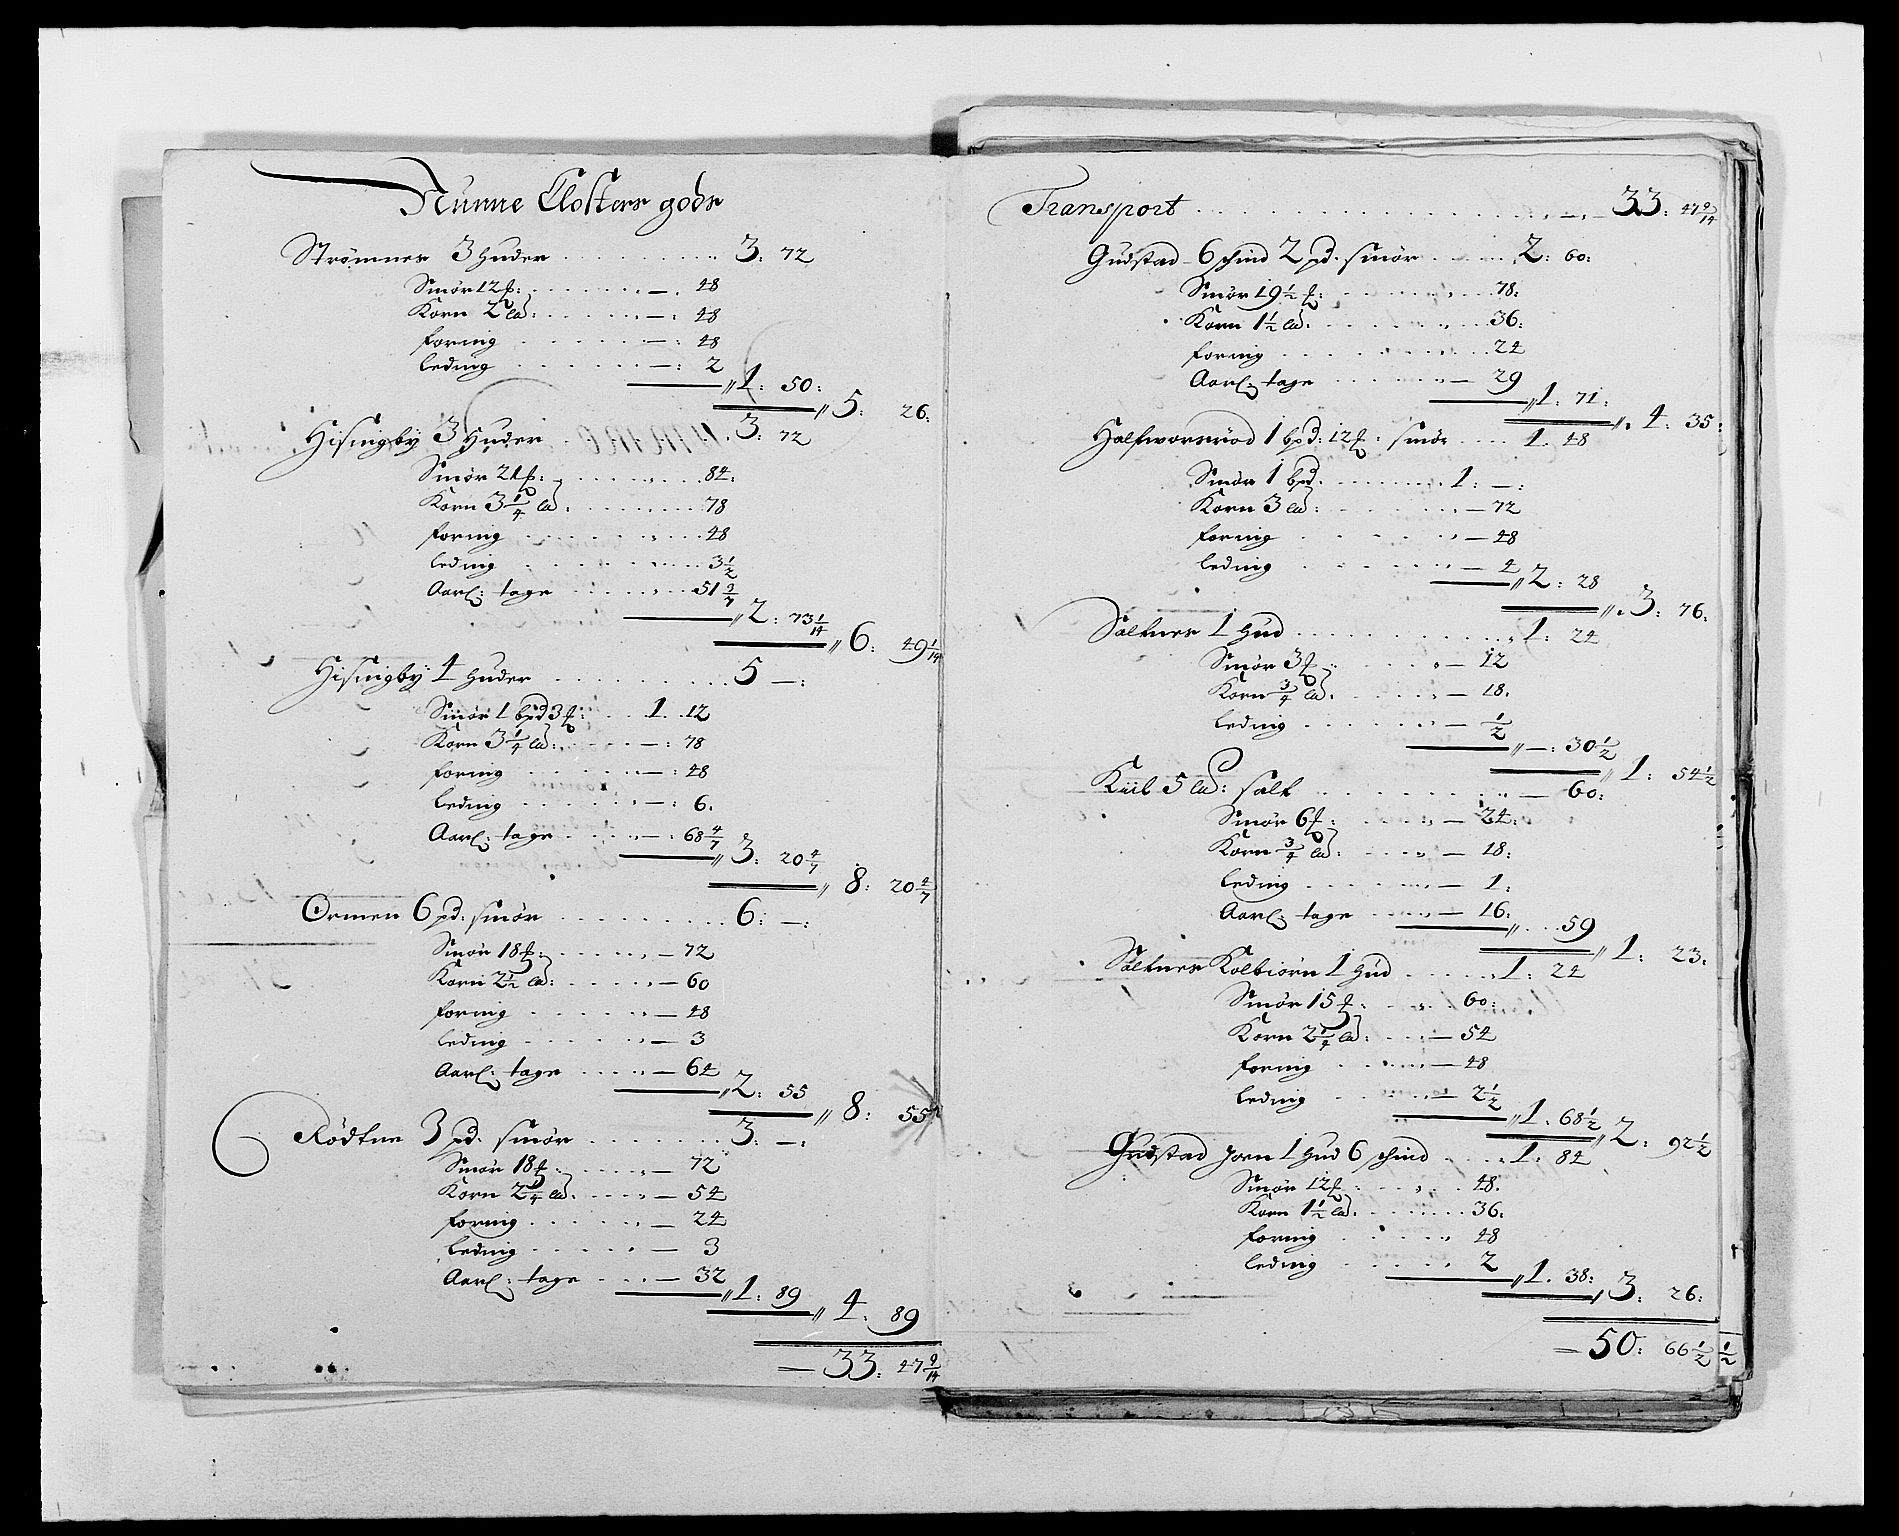 Nunne Closters gods
Strømner 3 huder . . . . . . . . . 3: 72
Smør 12 : . . . . . . — . 48
Korn 2 la: . . . . . — : 48
foring . . . . . . — : 48
leding . . . . . . — : 2
" 1: 50:
" 5: 26:
Hisingby 3 Huder . . . . 3: 72
Smør 21 : . . . . . . . 84:
Korn 3 1/4 la: . . . . . . . 78
foring . . . . . . . . 48
leding . . . . . . . . 3 1/2
Aarl: tage . . . . . . 51 3/7
" 2: 73 1/14
" 6: 49 1/14
Hisingby 4 huder . . . . . . . . . 5 —:
Smør 1 bpd 3 : . . . 1. 12
Korn 3 1/4 la: . . . . — : 78
foring . . . . . . — : 48
leding . . . . . . — : 6.
Aarl: tage . . . . — : 68 4/7
" 3: 20 4/7
" 8: 20 4/7
Ormen 6 pd: smør . . . . . . . . . 6: —:
Smør 18 : . . . . . — 72
Korn 2 1/2 la: . . . . . — 60
foring . . . . . . — 48
leding . . . . . . — 3
Aarl: tage . . . . — 64
" 2: 55
" 8: 55
Rödtne 3 pd. smør . . . . . . . 3: —:
Smør 18 : . . . . . — 72
Korn 2 1/4 la: . . . . — 54
foring . . . . . . — 24
leding . . . . . . — 3
Aarl: tage . . . . — 32
" 1: 89
" 4: 89
— 33: 47 9/14
Transport . . . . . . . . . . . . . . . . . — 33: 47 9/14
Gudstad 6 schind 2 pd. smør . . . . . 2: 60:
Smør 19 1/2 : . . . . . . 78:
Korn 1 1/2 la: . . . . . . 36:
foring . . . . . . . . 24
Aarl: tage . . . . . — 29
" 1: 71:
" 4: 35:
Halfworsröd 1 bpd: 12 : smør . . . . 1. 48
Smør 1 bpd. . . . . . . 1: —:
Korn 3 la: . . . . . . — 72
foring . . . . . . — 48
leding . . . . . . — 4
" 2: 28
" 3: 76:
Saltner 1 hud . . . . . . . . . . 1: 24
Smør 3 : . . . . . — 12
Korn 3/4 la: . . . . . — 18:
leding . . . . . . — 1/2
" —: 30 1/2
" 1: 54 1/2
Kiil 5 la: salt . . . . . . . . . — 60:
Smør 6 : . . . . . — 24:
Korn 3/4 la: . . . . . — 18:
leding . . . . . . — 1:
Aarl: tage . . . . — 16:
" . . . 59
" 1: 23:
Saltner Kolbiørn 1 hud . . . . . 1: 24
Smør 15 : . . . . . 60:
Korn 2 1/4 la: . . . . — 54
foring . . . . . — 48
leding . . . . . — 2 1/2
" 1: 68 1/2
" 2: 92 1/2
Gudstad Jorn 1 hud 6 schind . . . . 1: 84
Smør 12 : . . . . . 48:
Korn 1 1/2 la: . . . . . . 36:
foring . . . . . . 48
leding . . . . . . 2
" 1. 38:
3: 26:
— 50: 66 1/2
1/2